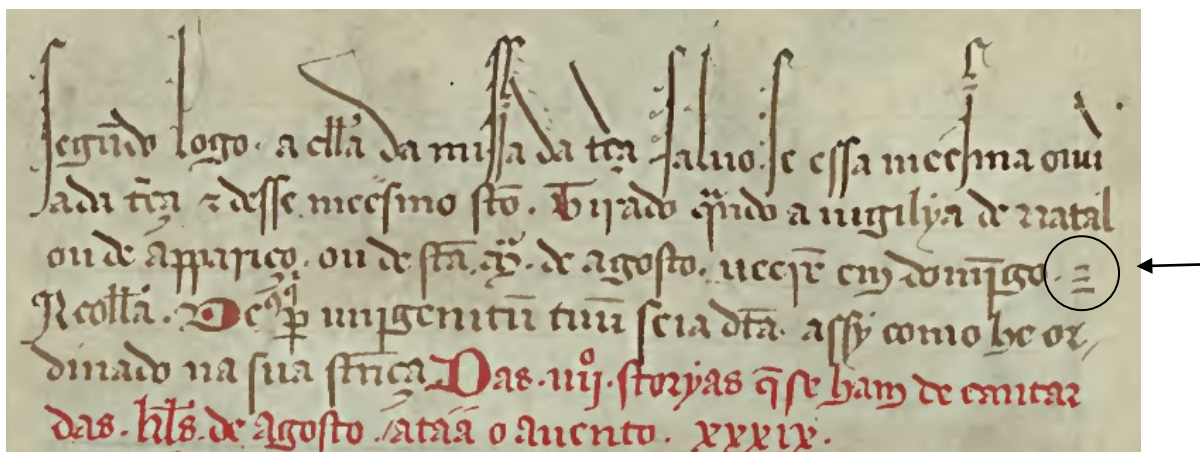 segūdo logo · a cllã da missa da tc̃a saluo · se essa meesma oui
ada tc̃a ⁊ desse meesmo sto͂ · Tirado qñdo a uigilya de natal
ou de appariço · ou de stã · de agosto · ueere͂ em domi͂go · =
Acollã · De unigenitũ tuũ seia dta͂ · assy como he or
dinado na sua st᷈nc̃a Das · iiijº · storyas q̃ se ham de cantar
das · kl͂s · de agosto · ataã o auento · xxxix ·